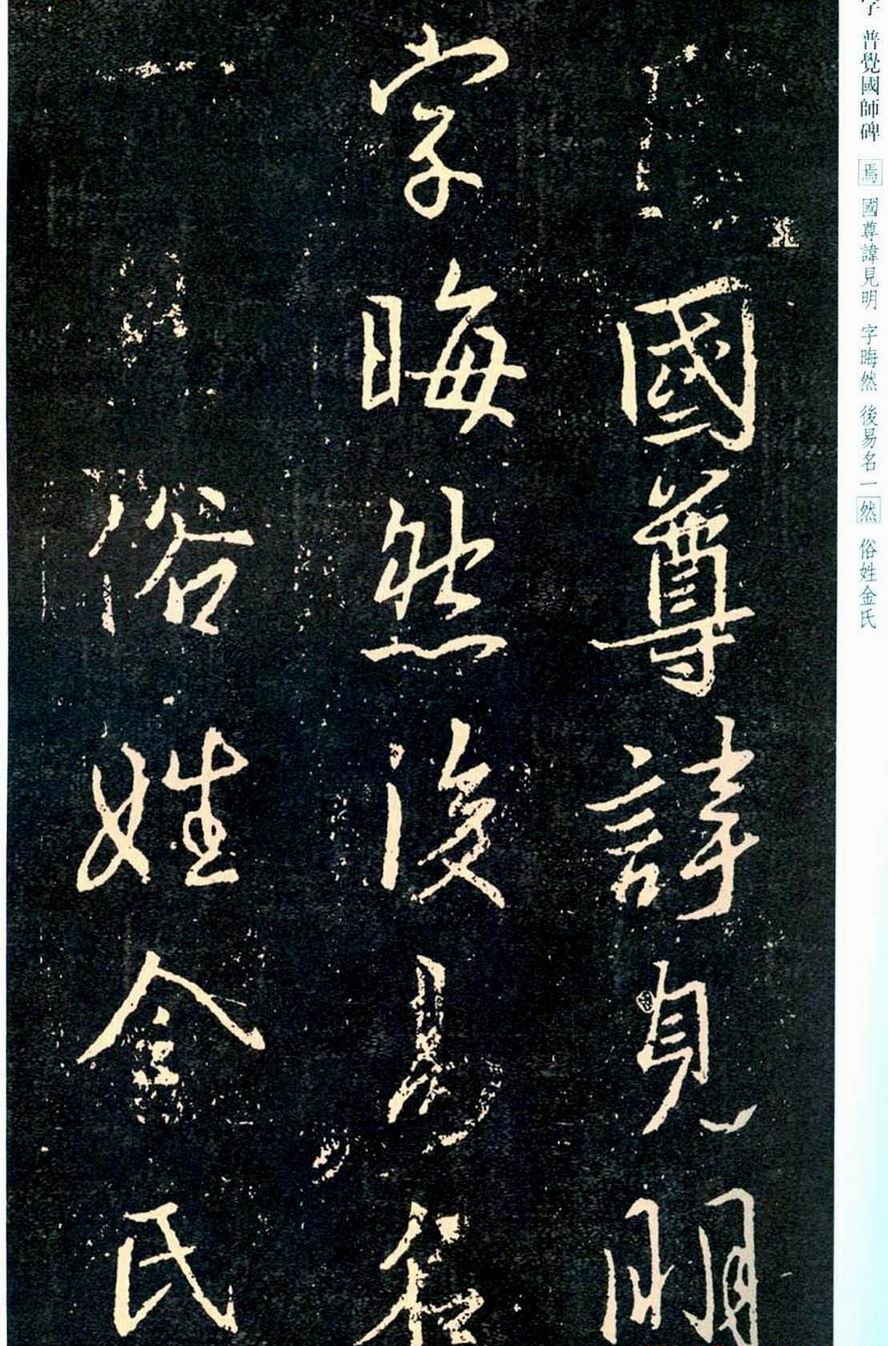 國尊諱見明
字晦然後易名
一
俗姓金氏
字 普覺國師碑 焉 國尊諱見明 字晦然 後易名一然 俗姓金氏